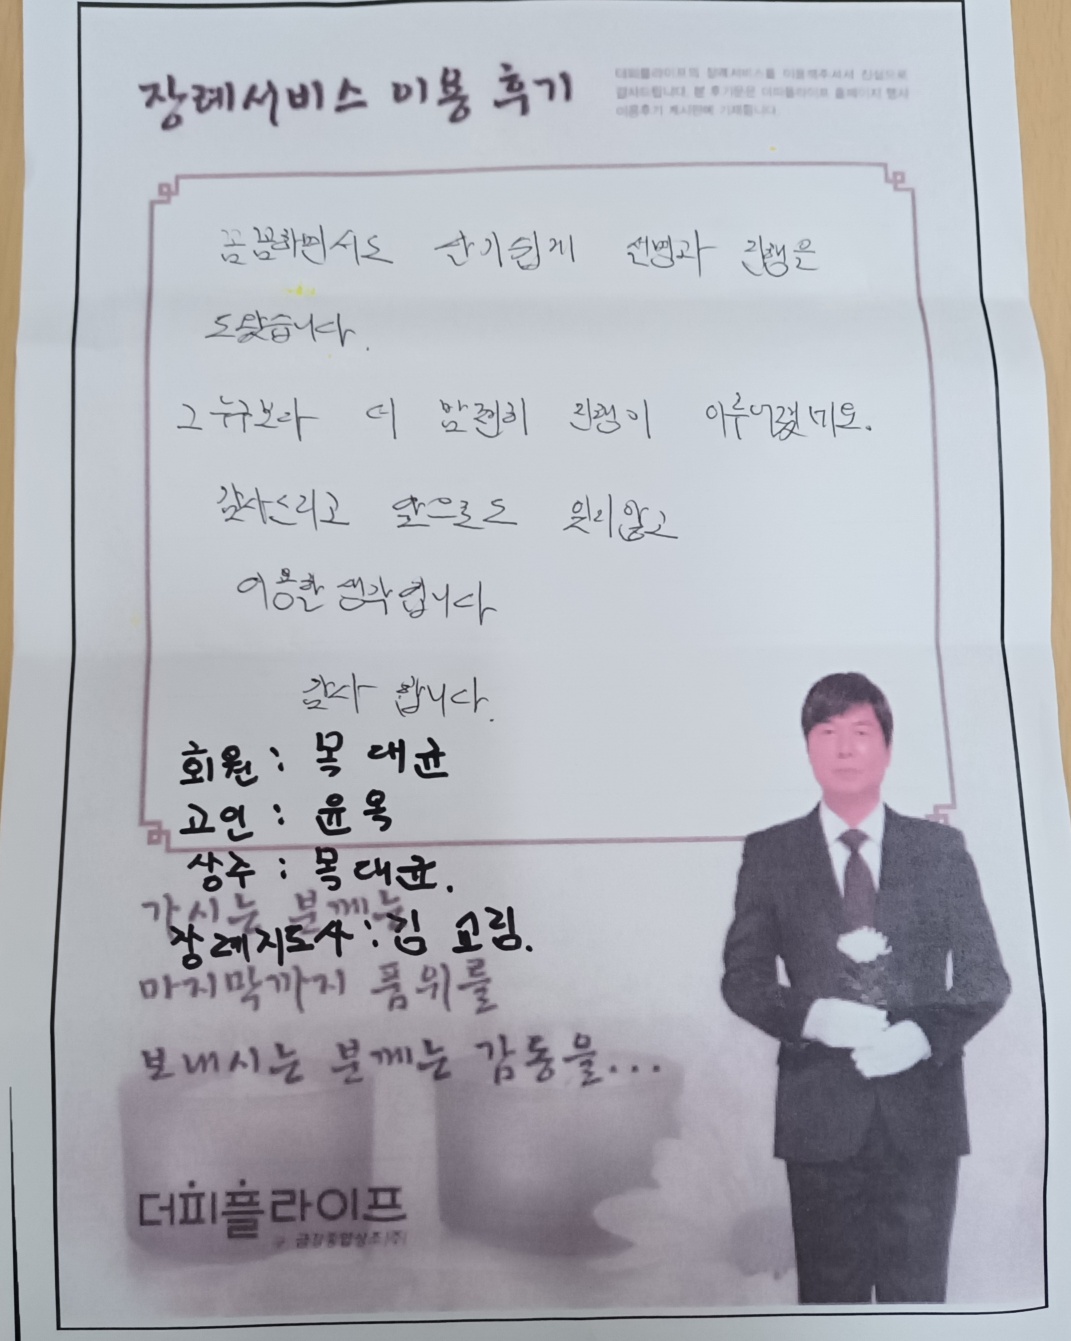 장례서비스 이용 후기
더피플라이프의 장례서비스를 이용해주셔서 진심으로
감사드립니다. 본 후기문은 더피플라이프 홈페이지 행사
이용후기 게시판에 기재됩니다.
꼼꼼하면서도 알기쉽게 설명과 진행을
도왔습니다.
그 누구보다 더 완전히 진행이 이루어졌네요.
감사드리고 앞으로도 잊지않고
이용할 생각 입니다
감사 합니다.
회원 : 목 대균
고인 : 윤 옥
상주 : 목 대균.
가시는 분께는
장례지도사 : 김 교림.
마지막까지 품위를
보내시는 분께는 감동을...
더피플라이프
구 금강종합상조(주)